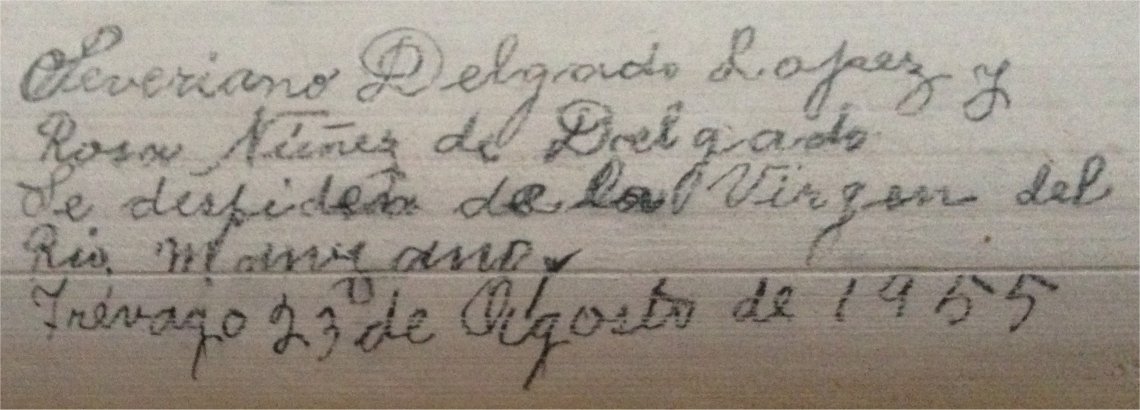 Severiano Delgado Lopez y
Rosa Núñez de Delgado
Se despiden de la Virgen del
Rio Manzano,
Trévago 23 de Agosto de 1955